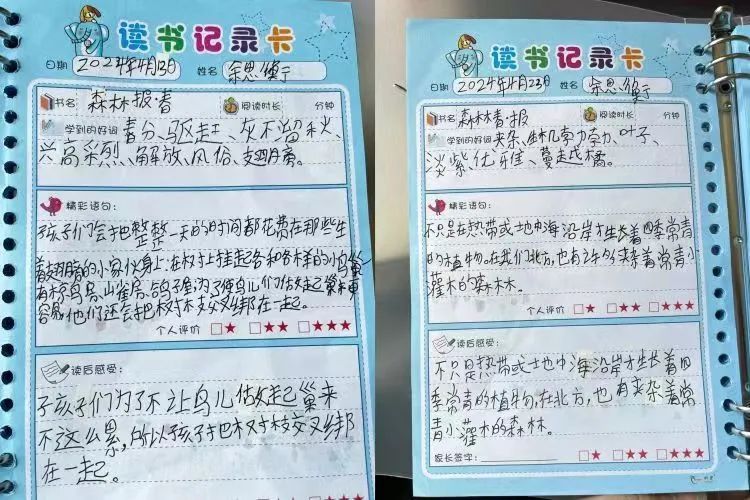 读书记录卡
日期 2024年4月13日 姓名 余思缤宁
书名 森林报春 阅读时长 分钟
学到的好词 春分、驱赶、灰不溜秋、
兴高彩烈、解放、风俗、翅膀。
精彩语句:
孩子们会把整整一天的时间都花费在那些生
着翅膀的小家伙身上:在树上挂起各种各样的小鸟巢
有椋鸟房、山雀房、鸽子屋,为了便鸟儿们做起巢来更
容易,他们还会把树枝交叉绑在一起。
个人评价 □★ □★★ □★★★
读后感受:
子孩子们为了不让鸟儿做起巢来
不这么累,所以孩子把树枝交叉绑
在一起。
读书记录卡
日期 2024年4月23日 姓名 余思缤宁
书名 森林春报 阅读时长 分钟
学到的好词 夹杂、生机勃勃、叶子、
淡紫、优雅、蔓越橘。
精彩语句:
不只是在热带或地中海沿岸才生长着四季常青
的植物。在我们北方,也有许多夹着常青小
灌木的森林。
个人评价 □★ □★★ □★★★
读后感受:
不只是热带或地中海沿岸才生长着四
季常青的植物,在北方,也有夹杂着常
青小灌木的森林。
家长签字: □★ □★★ □★★★